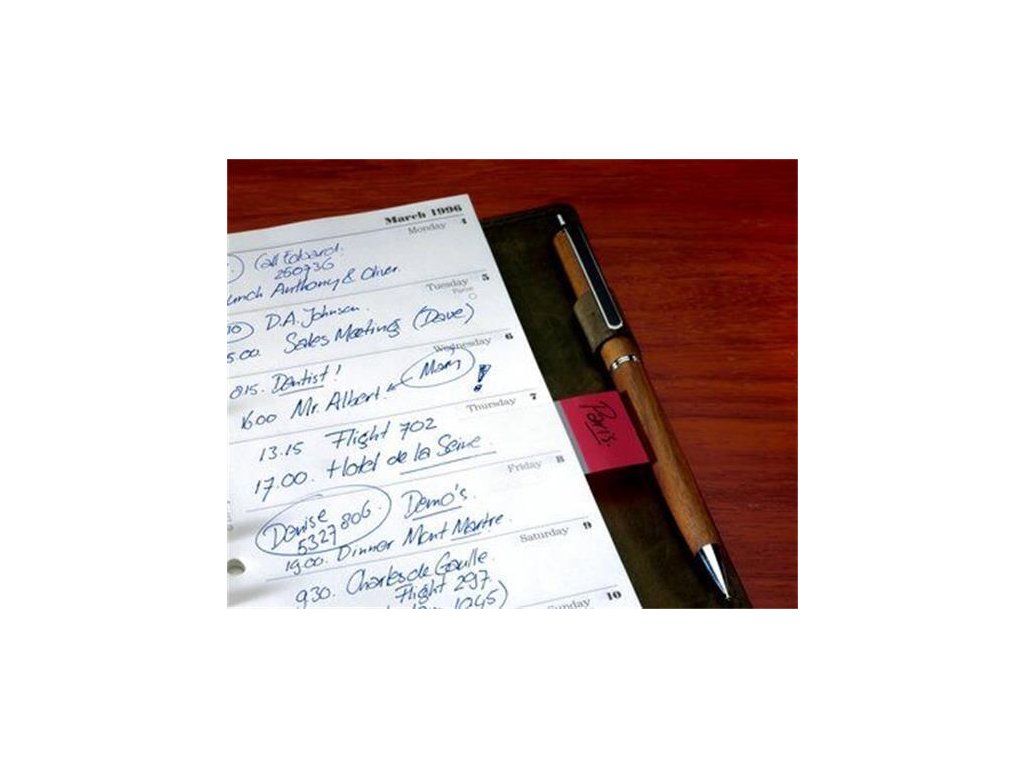 March 1996
Monday 4
Call Edvard.
260736
Lunch Anthony & Oliver
Tuesday 5
D.A. Johnson.
5.00. Sales Meeting (Dave)
Wednesday 6
815. Dentist!
Mary !
1600 Mr. Albert.
Thursday 7
13.15 Flight 702
17.00. Hotel de la Seine.
Paris.
Friday 8
Denise 5327806. Demo's.
1900. Dinner Mont Martre.
Saturday 9
930. Charles de Gaulle.
Flight 297.
1045)
Sunday 10